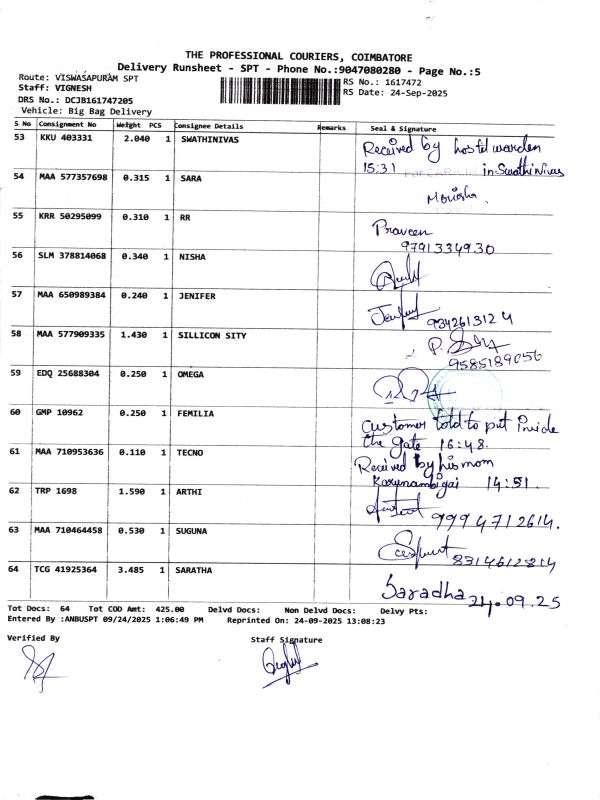 THE PROFESSIONAL COURIERS, COIMBATORE
Delivery Runsheet - SPT - Phone No.:9047080280 - Page No.:5
Route: VISWASAPURAM SPT
RS No.: 1617472
Staff: VIGNESH
RS Date: 24-Sep-2025
DRS No.: DCJB161747205
Vehicle: Big Bag Delivery
S.No Consignment No Weight PCS Consignee Details Remarks Seal & Signature
53 KKU 403331 2.040 1 SWATHINIVAS Received by hostel warden
15:31 in Swathi Nivas
54 MAA 577357698 0.315 1 SARA Monisha.
55 KRR 50295099 0.310 1 RR Praveen
9791334930
56 SLM 378814068 0.340 1 NISHA
57 MAA 650989384 0.240 1 JENIFER 9342613124
58 MAA 577909335 1.430 1 SILLICON SITY
9585189056
59 EDQ 25688304 0.250 1 OMEGA
60 GMP 10962 0.250 1 FEMILIA Customer told to put inside
the gate 16:48.
61 MAA 710953636 0.110 1 TECNO Received by his mom
Karunambigai 14:51.
62 TRP 1698 1.590 1 ARTHI 9994712614.
63 MAA 710464458 0.530 1 SUGUNA
64 TCG 41925364 3.485 1 SARATHA Saradha 24.09.25
Tot Docs: 64 Tot COD Amt: 425.00 Delvd Docs: Non Delvd Docs: Delvy Pts:
Entered By :ANBUSPT 09/24/2025 1:06:49 PM Reprinted On: 24-09-2025 13:08:23
Verified By Staff Signature